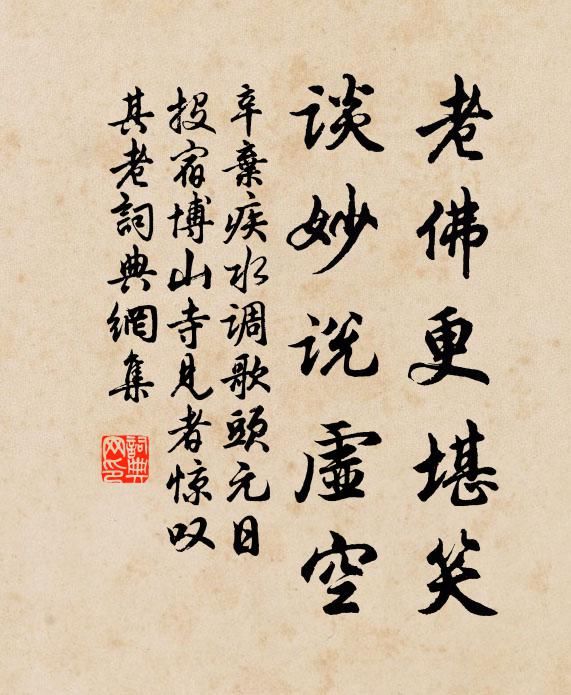 老佛更堪笑
谈妙说虚空
辛棄疾水调歌頭元日
投宿博山寺見者惊叹
其老詞典網集
詞典
网印